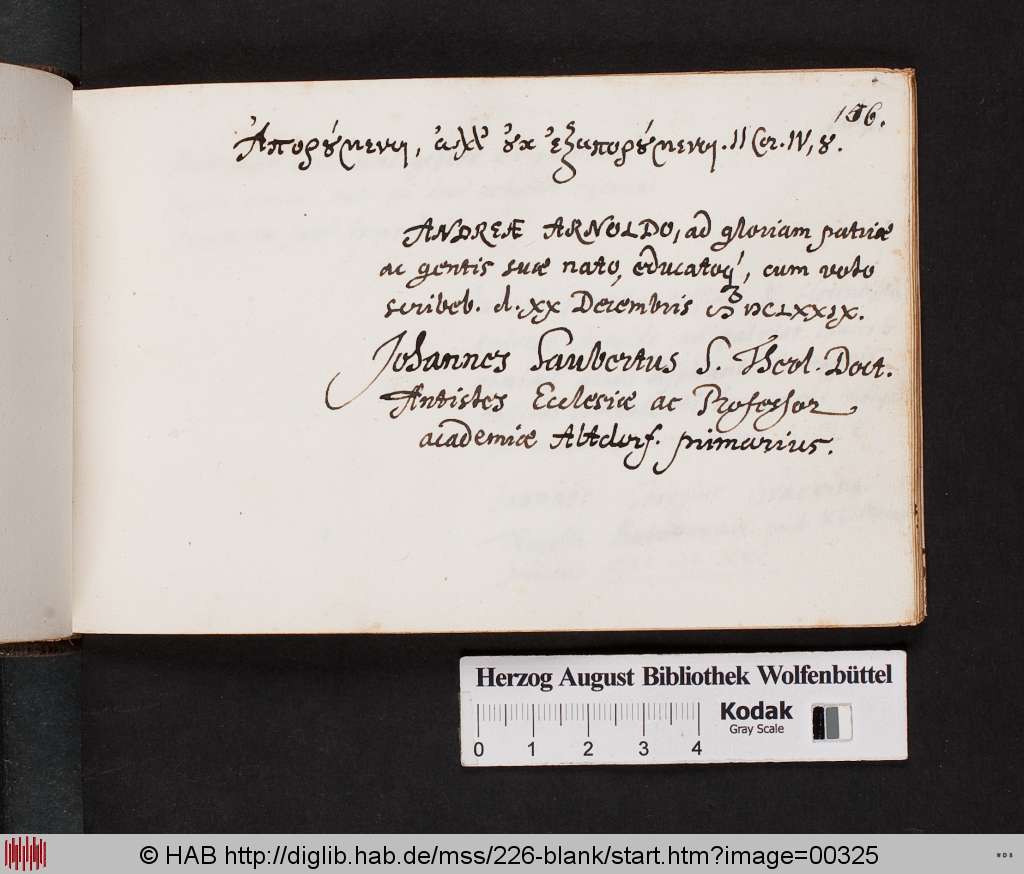 166.
Ἀπορούμενοι, ἀλλ' οὐκ ἐξαπορούμενοι. II Cor. IV, 8.
ANDREÆ ARNOLDO, ad gloriam patriæ
ac gentis suæ nato, educatoq́, cum voto
scribeb. d. XX Decembris MDCLXXIX.
Johannes Saubertus S. Theol. Doct.
Antistes Ecclesiæ ac Professor
academiæ Altdorf. primarius.
Herzog August Bibliothek Wolfenbüttel
Kodak
Gray Scale
0 1 2 3 4
© HAB http://diglib.hab.de/mss/226-blank/start.htm?image=00325